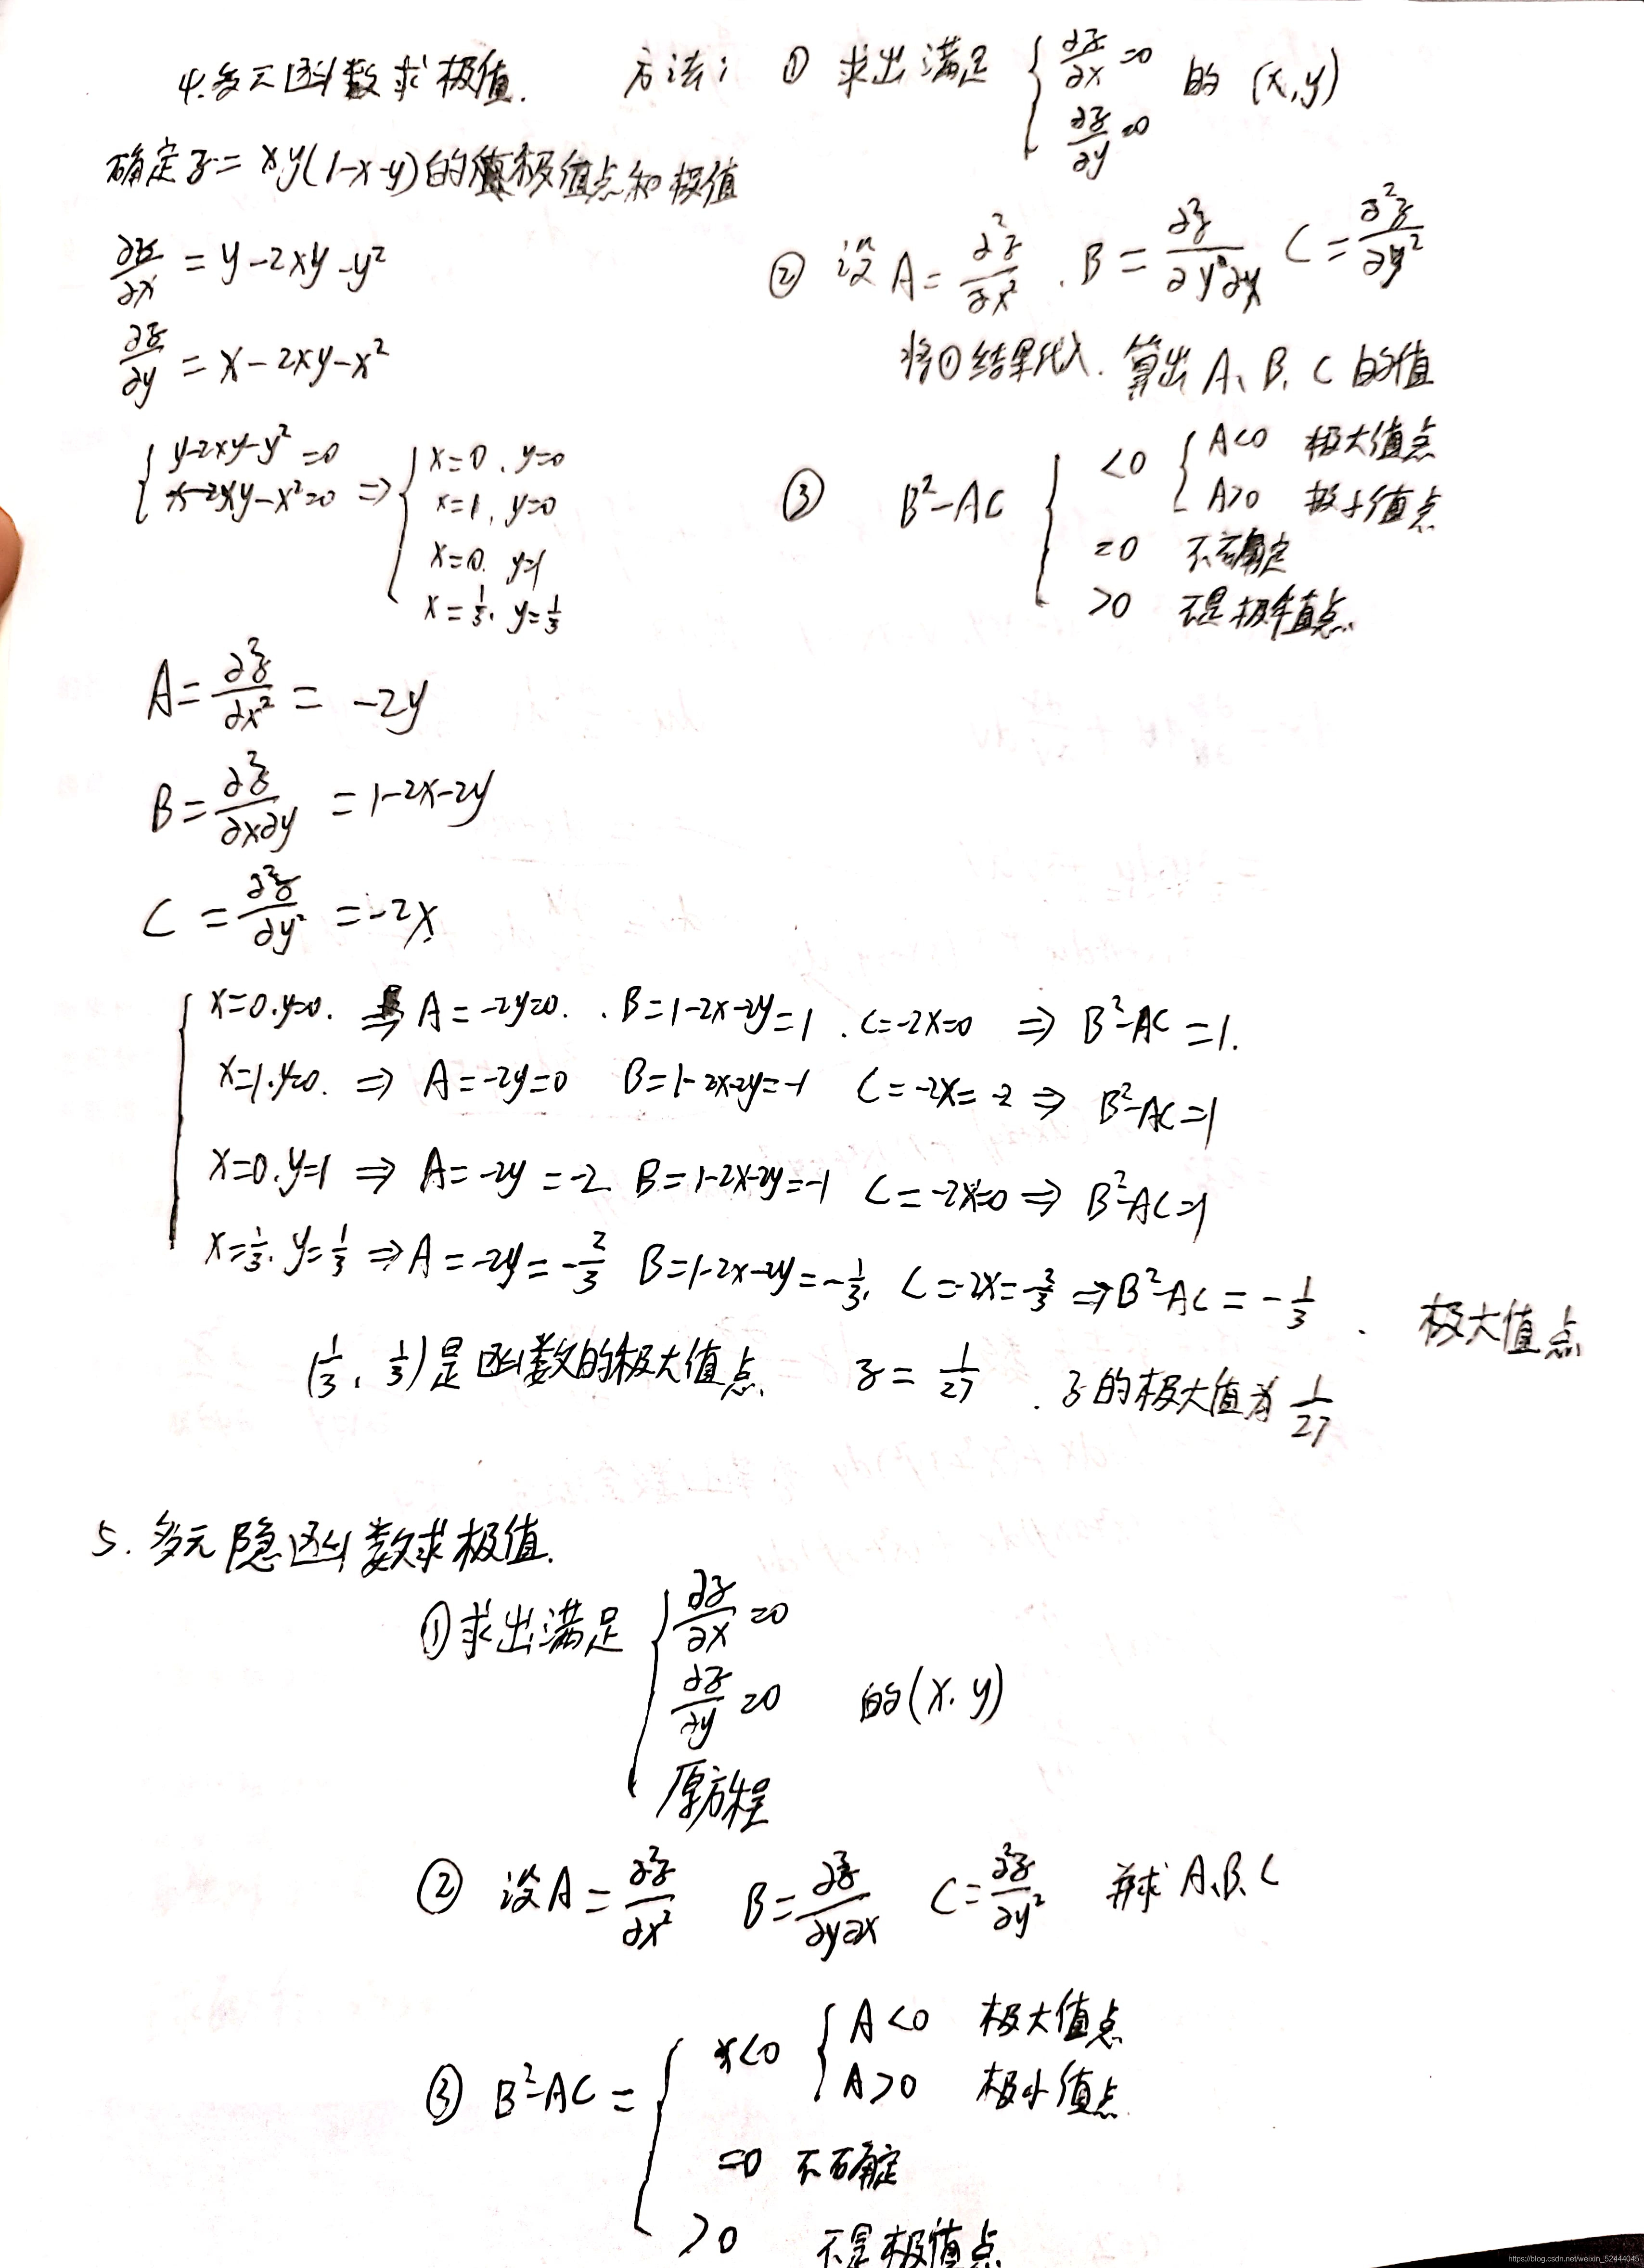 4.多元函数求极值.
方法: ① 求出满足 { ∂z/∂x=0 的 (x,y)
∂z/∂y=0
确定z=xy(1-x-y)的极值点和极值
∂z/∂x = y-2xy-y²
∂z/∂y = x-2xy-x²
② 设 A=∂²z/∂x² . B=∂²z/∂y∂x C=∂²z/∂y²
将①结果代入. 算出 A、B、C 的值
{ y-2xy-y²=0
x-2xy-x²=0 ⇒ { x=0 . y=0
x=1, y=0
x=0. y=1
x=1/3. y=1/3
③ B²-AC { <0 { A<0 极大值点
A>0 极小值点
=0 不确定
>0 不是极值点.
A=∂²z/∂x² = -2y
B=∂²z/∂x∂y = 1-2x-2y
C=∂²z/∂y² =-2x
{ x=0.y=0. ⇒ A=-2y=0. . B=1-2x-2y=1 . C=-2x=0 ⇒ B²-AC=1.
x=1.y=0. ⇒ A=-2y=0 B=1-2x-2y=-1 C=-2x=-2 ⇒ B²-AC=1
x=0.y=1 ⇒ A=-2y=-2 B=1-2x-2y=-1 C=-2x=0 ⇒ B²-AC=1
x=1/3. y=1/3 ⇒ A=-2y=-2/3 B=1-2x-2y=-1/3. C=-2x=-2/3 ⇒ B²-AC=-1/3 . 极大值点
(1/3, 1/3)是函数的极大值点. z=1/27 . z的极大值为1/27
5. 多元隐函数求极值.
①求出满足 { ∂z/∂x=0
∂z/∂y=0 的(x.y)
原方程
② 设A=∂²z/∂x² B=∂²z/∂y∂x C=∂²z/∂y² 并求 A、B、C
③ B²-AC= { <0 { A<0 极大值点
A>0 极小值点
=0 不确定
>0 不是极值点
https://blog.csdn.net/weixin_52444045